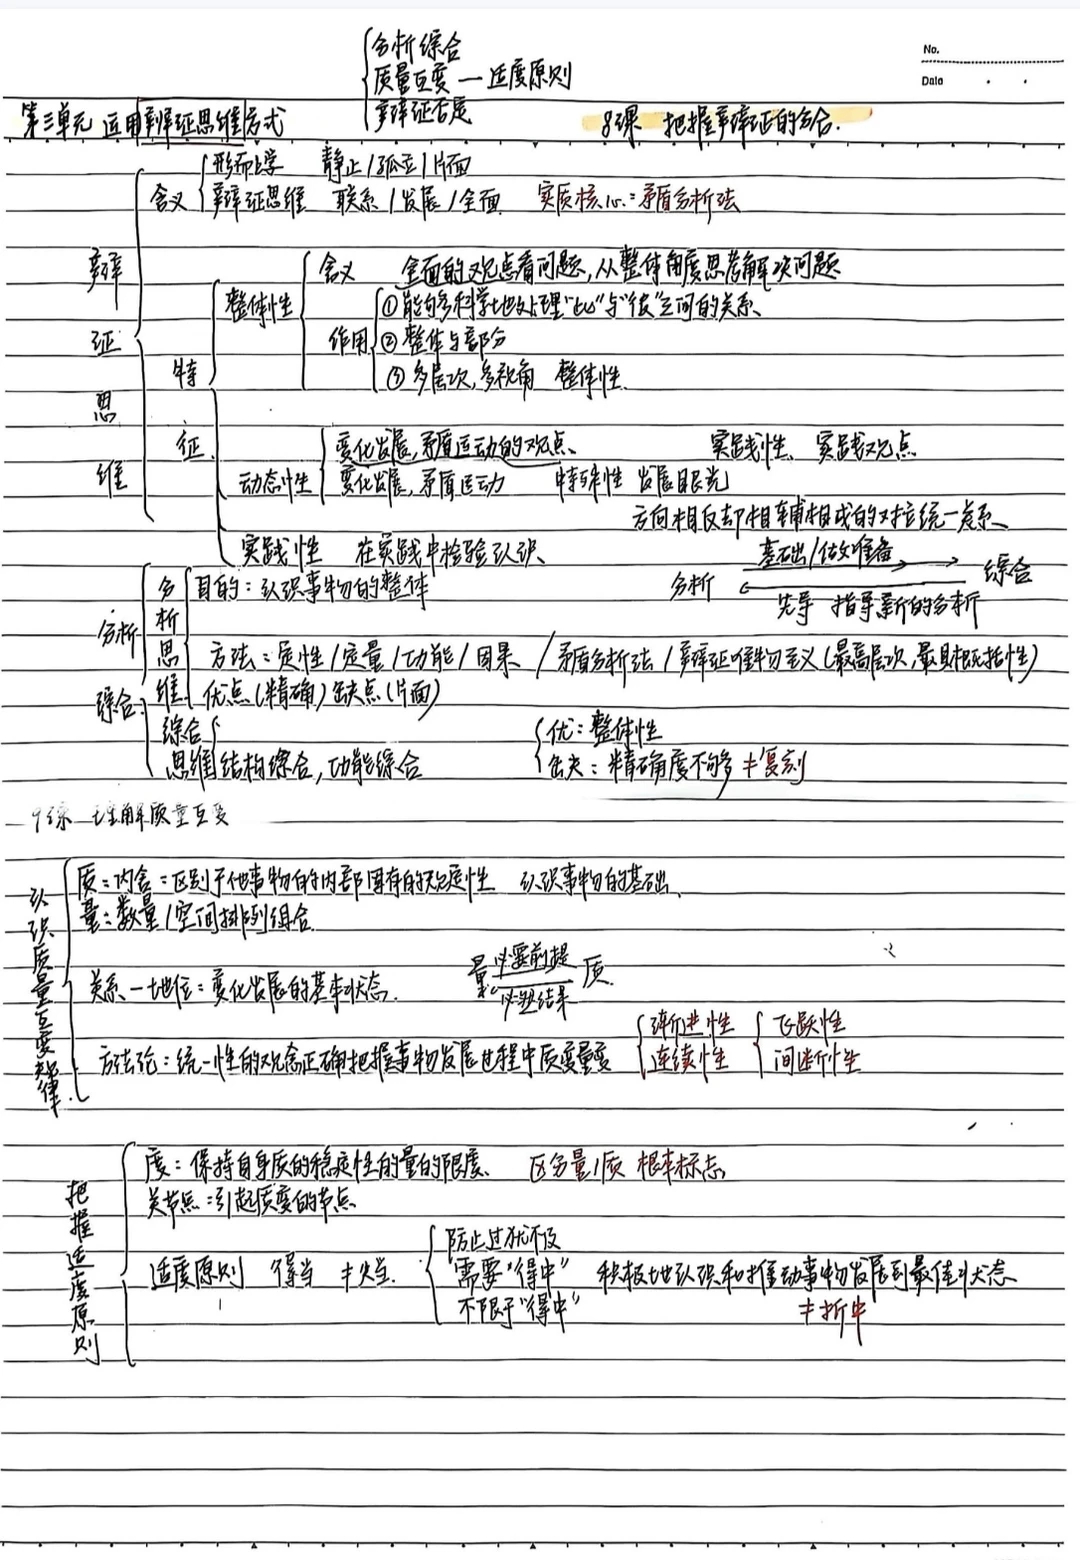 分析综合
质量互变 — 适度原则
辩证否定
No.
Date
第三单元 运用辩证思维方式
8课 把握辩证的分合.
辩证思维
含义
形而上学 静止/孤立/片面
辩证思维 联系/发展/全面 实质核心:矛盾分析法
特征
整体性
含义 全面的观点看问题,从整体角度思考解决问题
作用
①能够多科学地处理"此"与"彼"之间的关系
②整体与部分
③多层次,多视角 整体性.
动态性
变化发展,矛盾运动的观点. 实践性 实践观点
变化发展,矛盾运动 特殊性 发展眼光
实践性 在实践中检验认识
方向相反却相辅相成的对立统一关系
分析 基础/做准备 综合
先导 指导新的分析
分析综合:
分析思维
目的:认识事物的整体
方法:定性/定量/功能/因果/矛盾分析法/辩证唯物主义(最高层次,最具概括性)
优点(精确)缺点(片面)
综合思维 结构综合,功能综合
优:整体性
缺:精确度不够 ≠复刻
9课 理解质量互变
认识质量互变规律.
质:内含:区别于他事物的内部固有的规定性 认识事物的基础.
量:数量/空间排列组合.
关系—地位:变化发展的基本状态. 量 必要前提 质.
必然结果
方法论:统一性的观念正确把握事物发展过程中质变量变
渐进性 飞跃性
连续性 间断性
把握适度原则
度:保持自身质的稳定性的量的限度. 区分量/质 根本标志.
关节点:引起质变的节点
适度原则 得当 ≠失当.
防止过犹不及
需要"得中" 积极地认识和推动事物发展到最佳状态
不限于"得中" ≠折中